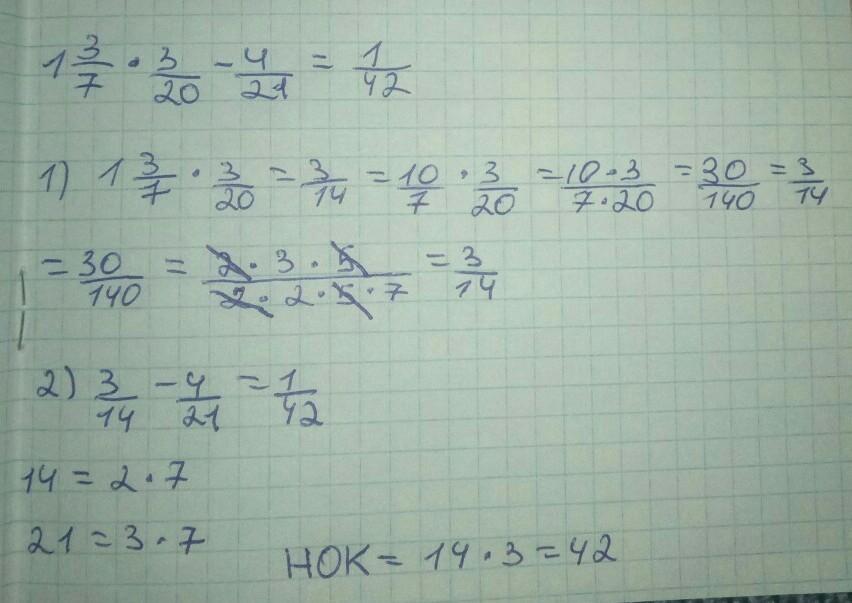 1 3/7 · 3/20 - 4/21 = 1/42
1) 1 3/7 · 3/20 = 3/14 = 10/7 · 3/20 = 10·3/7·20 = 30/140 = 3/14
= 30/140 = 2·3·5/2·2·5·7 = 3/14
2) 3/14 - 4/21 = 1/42
14 = 2·7
21 = 3·7
НОК = 14·3 = 42